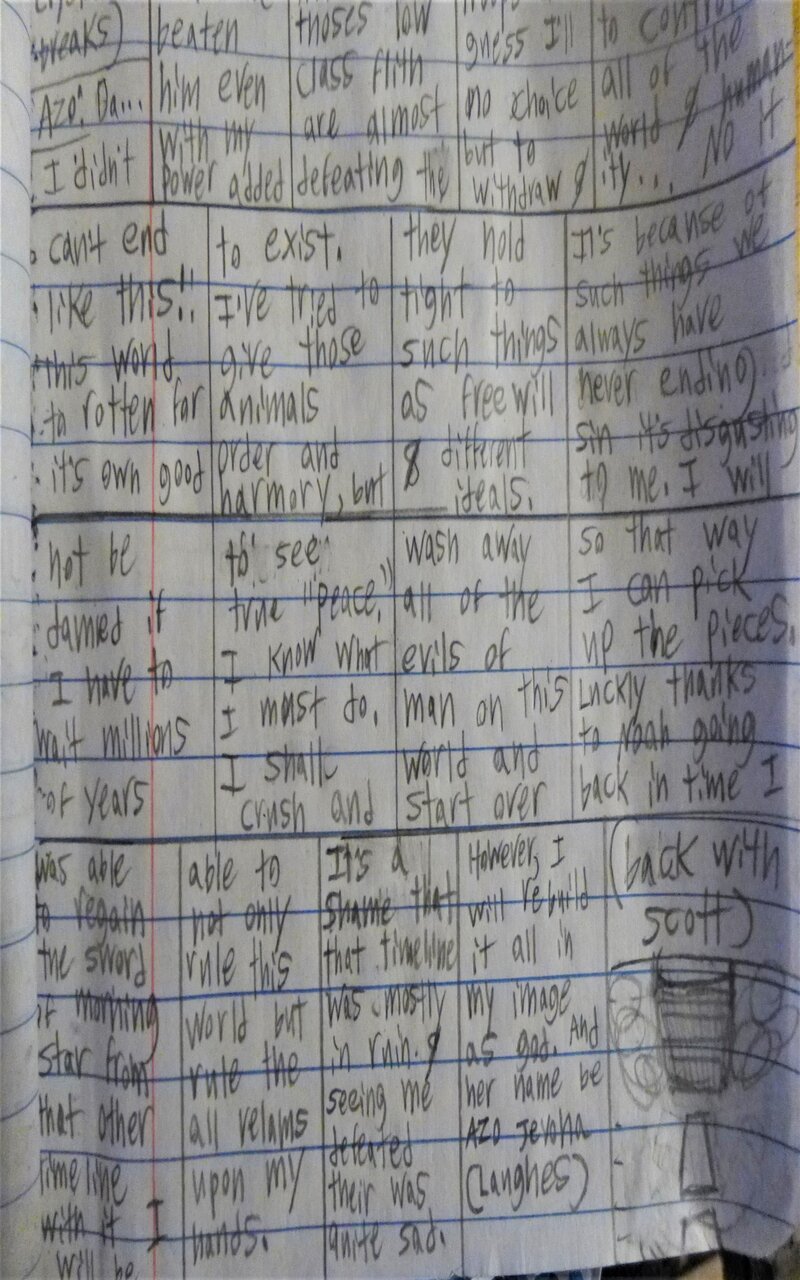 breaks)
AZO: Da...
I didn't
beaten
him even
with my
power added
thoses low
class flith
are almost
defeating the
gness I'll
no choice
but to
withdraw &
to control
all of the
world & human-
ity... No it
can't end
like this!!
this world
to rotten for
it's own good
to exist.
I've tried to
give those
animals
order and
harmory, but
they hold
tight to
such things
as freewill
& different
ideals.
It's because of
such things we
always have
never ending
sin it's disgusting
to me. I will
not be
damied if
I have to
wait millions
of years
to see
true "peace,"
I know what
I must do.
I shall
crush and
wash away
all of the
evils of
man on this
world and
start over
so that way
I can pick
up the pieces.
Luckly thanks
to Noah going
back in time I
was able
to regain
the sword
of morning
star from
that other
timeline
with it I
will be
able to
not only
rule this
world but
rule the
all relams
upon my
hands.
It's a
shame that
that timeline
was mostly
in ruin. &
seeing me
defeated
their was
quite sad.
However, I
will rebuild
it all in
my image
as god. And
her name be
AZO Jevoha
(Laughes)
(back with
scott)